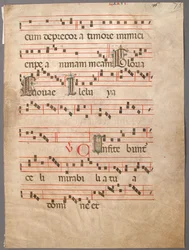 cum deprecor a timore inimici
eripe a nimam meam
lle lu ya
On fite bunt
ce li mirabi lia tu a
domi ne et